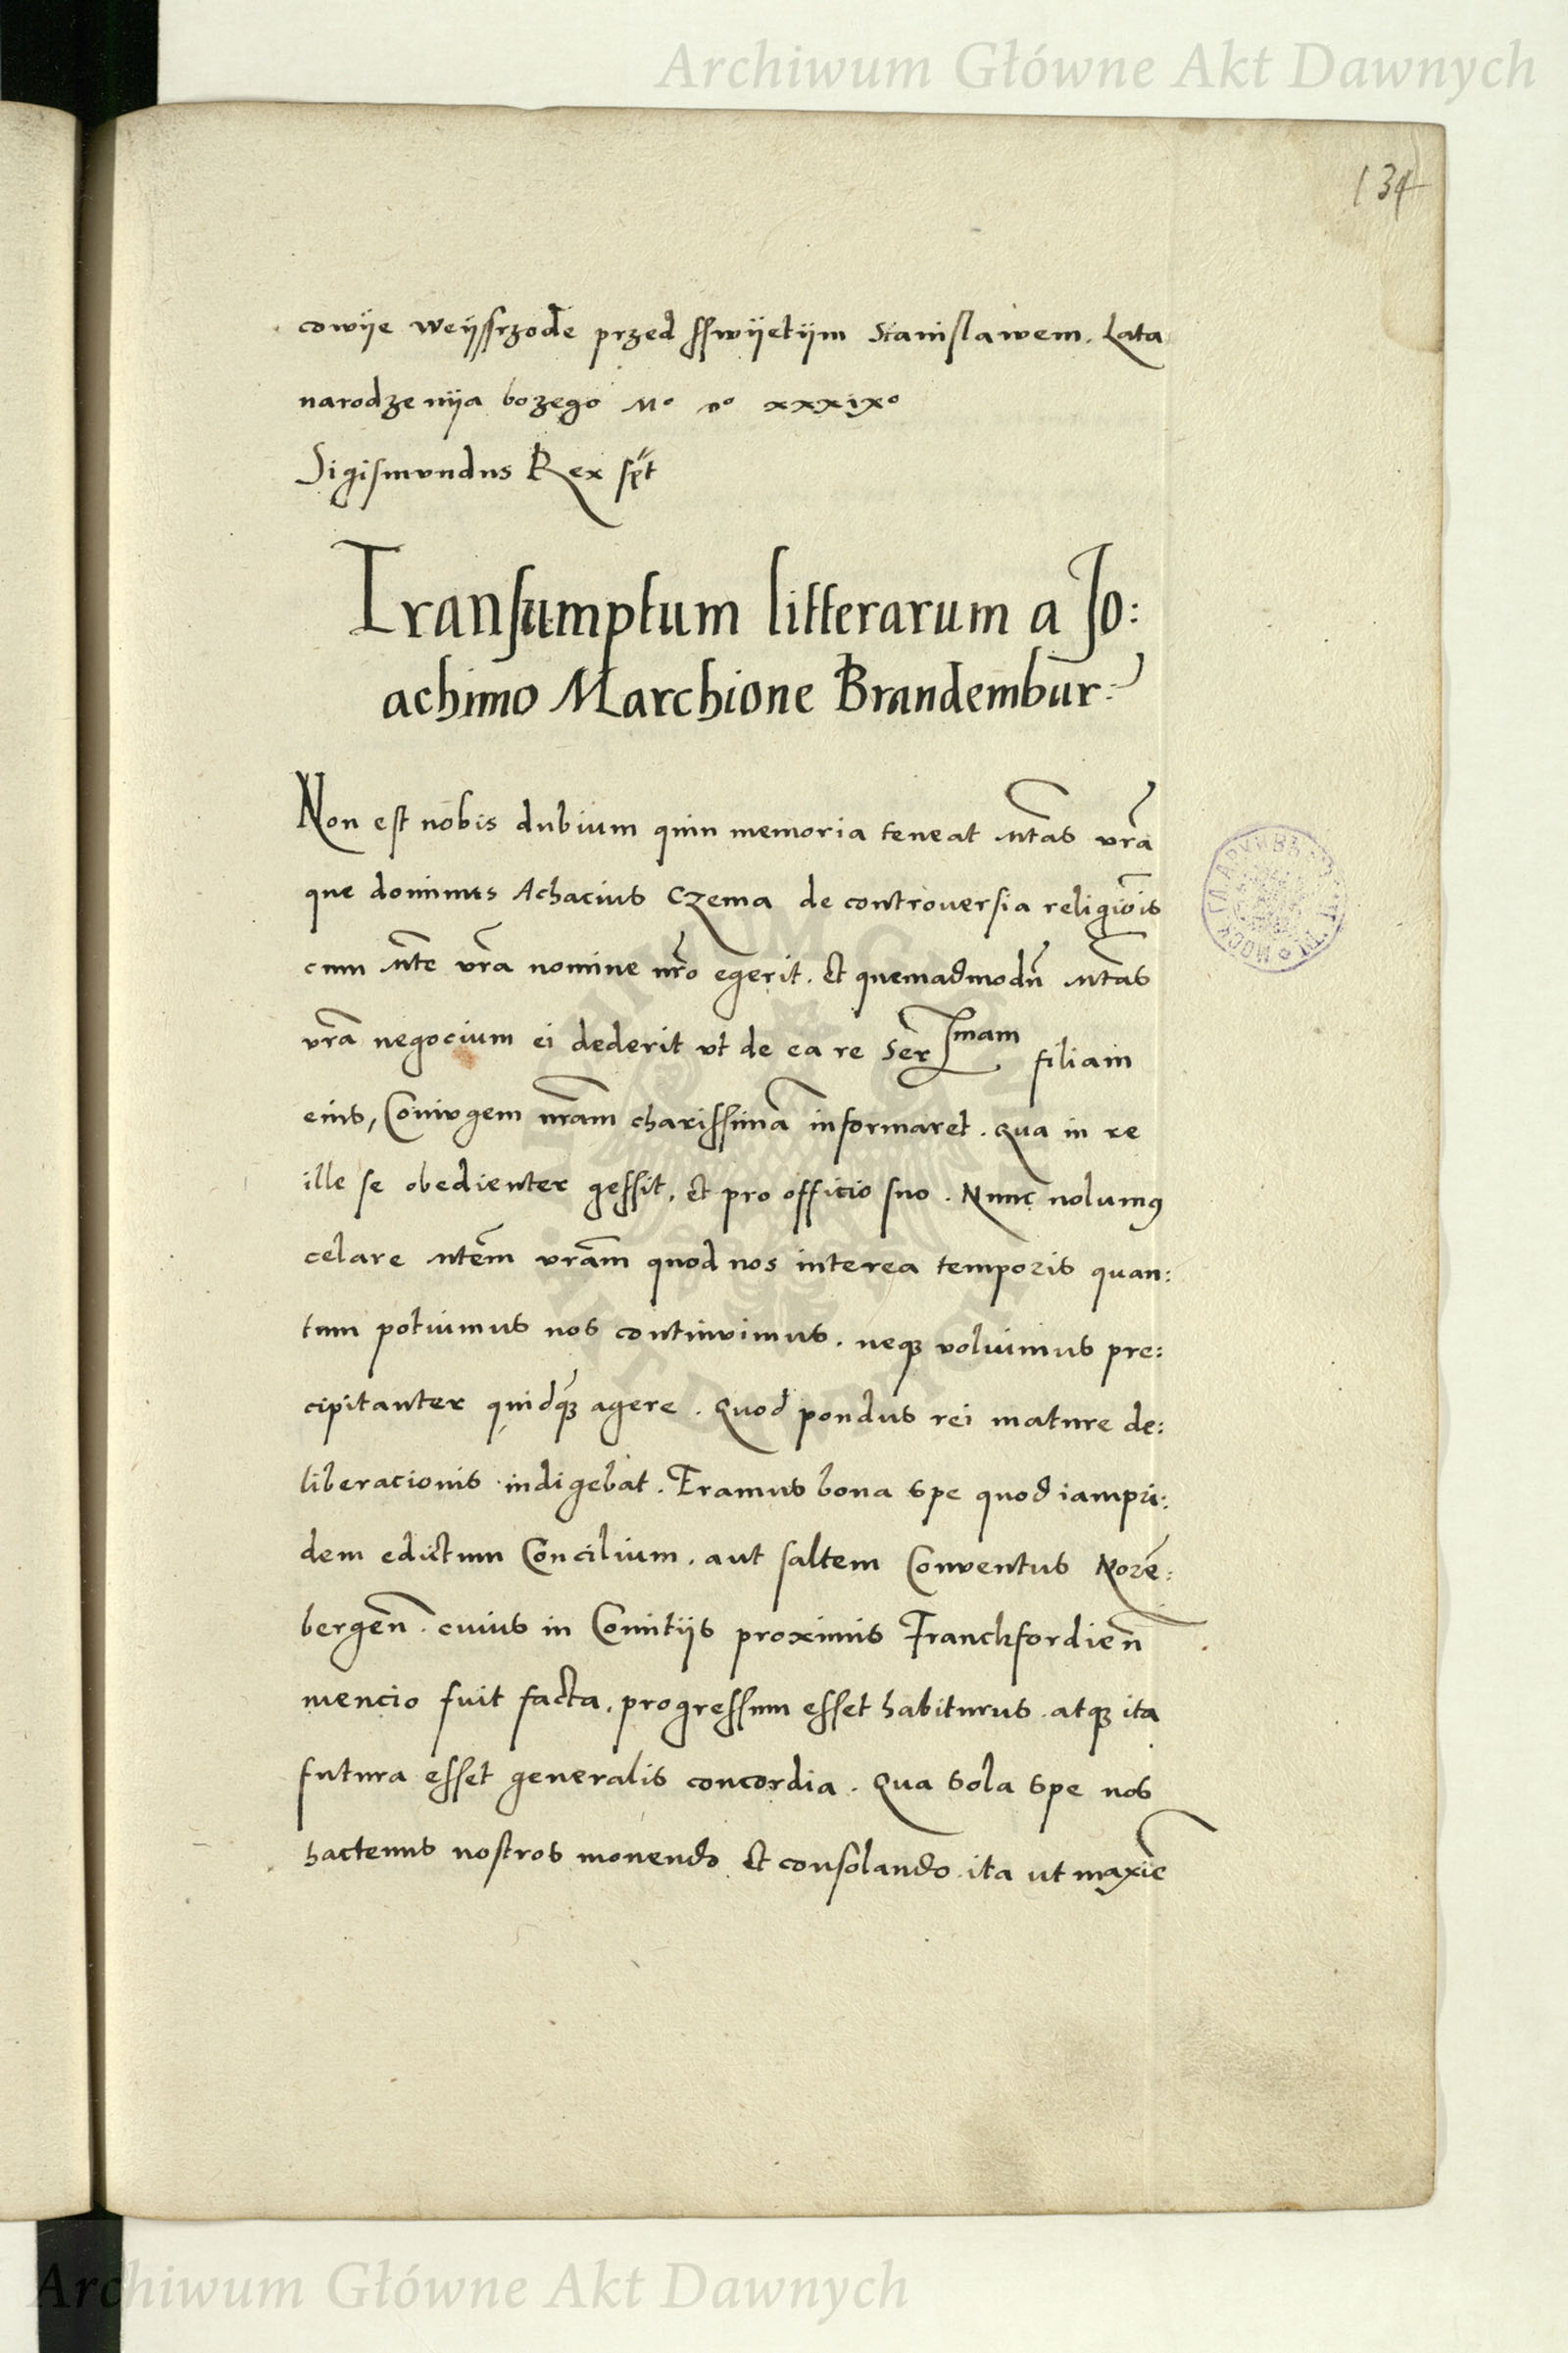 Archiwum Główne Akt Dawnych
134
cowije weijssrzode przed sswijetijm Stanislawem. Lata
narodzenija bozego Mº Dº xxxixº
Sigismundus Rex sp̄t
Transumptum litterarum a Jo:
achimo Marchione Brandembur:
Non est nobis dubium quin memoria teneat Mtas vr̃a
que dominus Achacius Czema de controuersia religiõis
cum Mte vr̃a nomine nr̃o egerit. Et quemadmodũ Mtas
vr̃a negocium ei dederit vt de ea re Ser mam filiam
eius, Coniugem nr̃am charissimã informaret. Qua in re
ille se obedienter gessit, et pro officio suo. Nunc nolumꝰ
celare Mtem vr̃am quod nos interea temporis quan:
tum potuimus nos continuimus. neqꝫ voluimus pre:
cipitanter quidqꝫ agere. Quod pondus rei mature de:
liberacionis indigebat. Eramus bona spe quod iampri:
dem edictum Concilium. aut saltem Conventus Norē:
bergeñ. cuius in Comitijs proximis Franckfordień
mencio fuit facta, progressum esset habiturus. atqꝫ ita
futura esset generalis concordia. Qua sola spe nos
hactenus nostros monendo Et consolando ita ut maxiē
Archiwum Główne Akt Dawnych